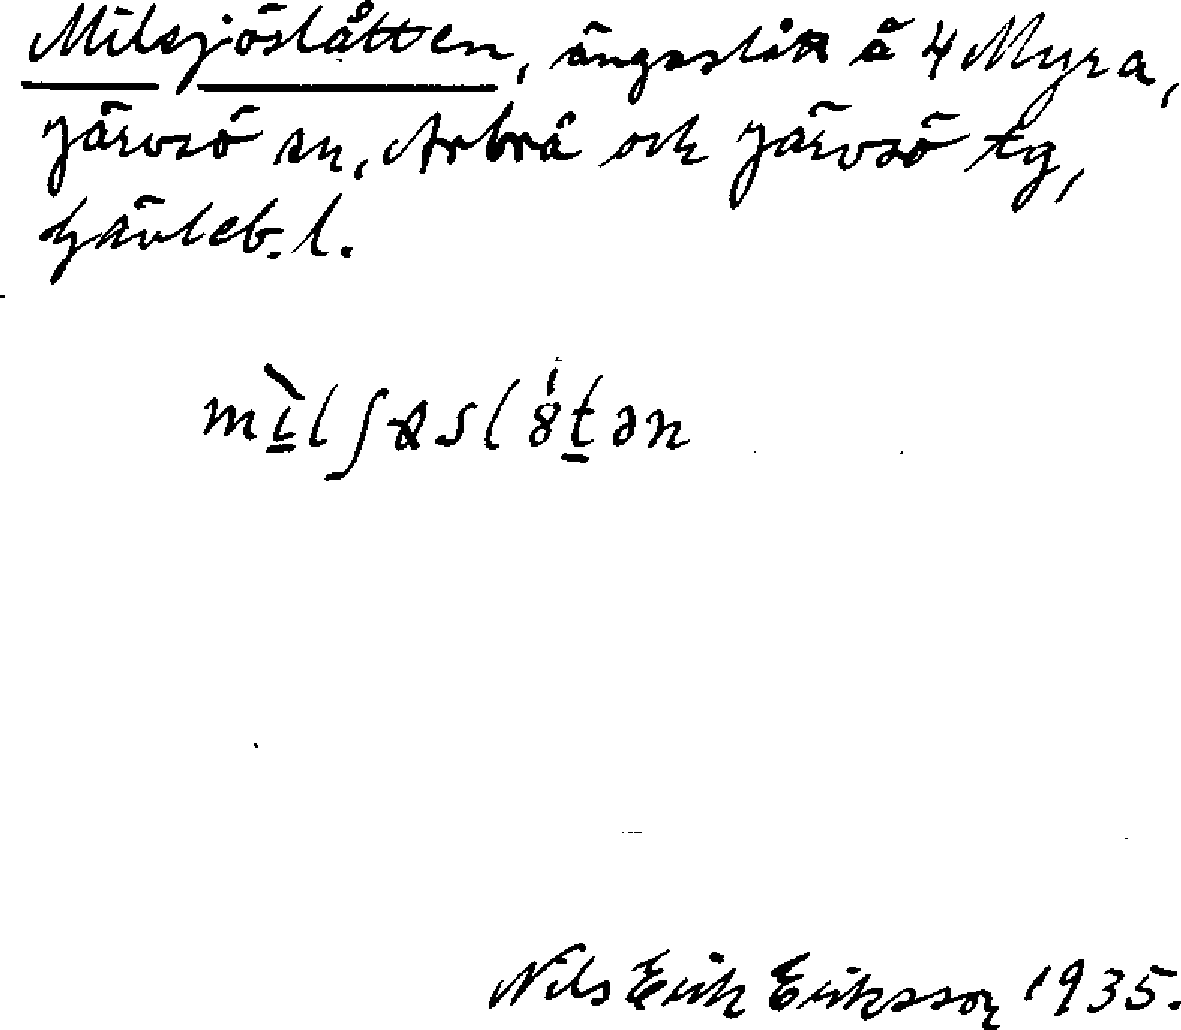 Milsjöslåtten, ängsslått å 4 Myra,
Järvsö sn, Arbrå och Järvsö tg,
Gävleb. l.
Nils Erik Eriksson 1935.